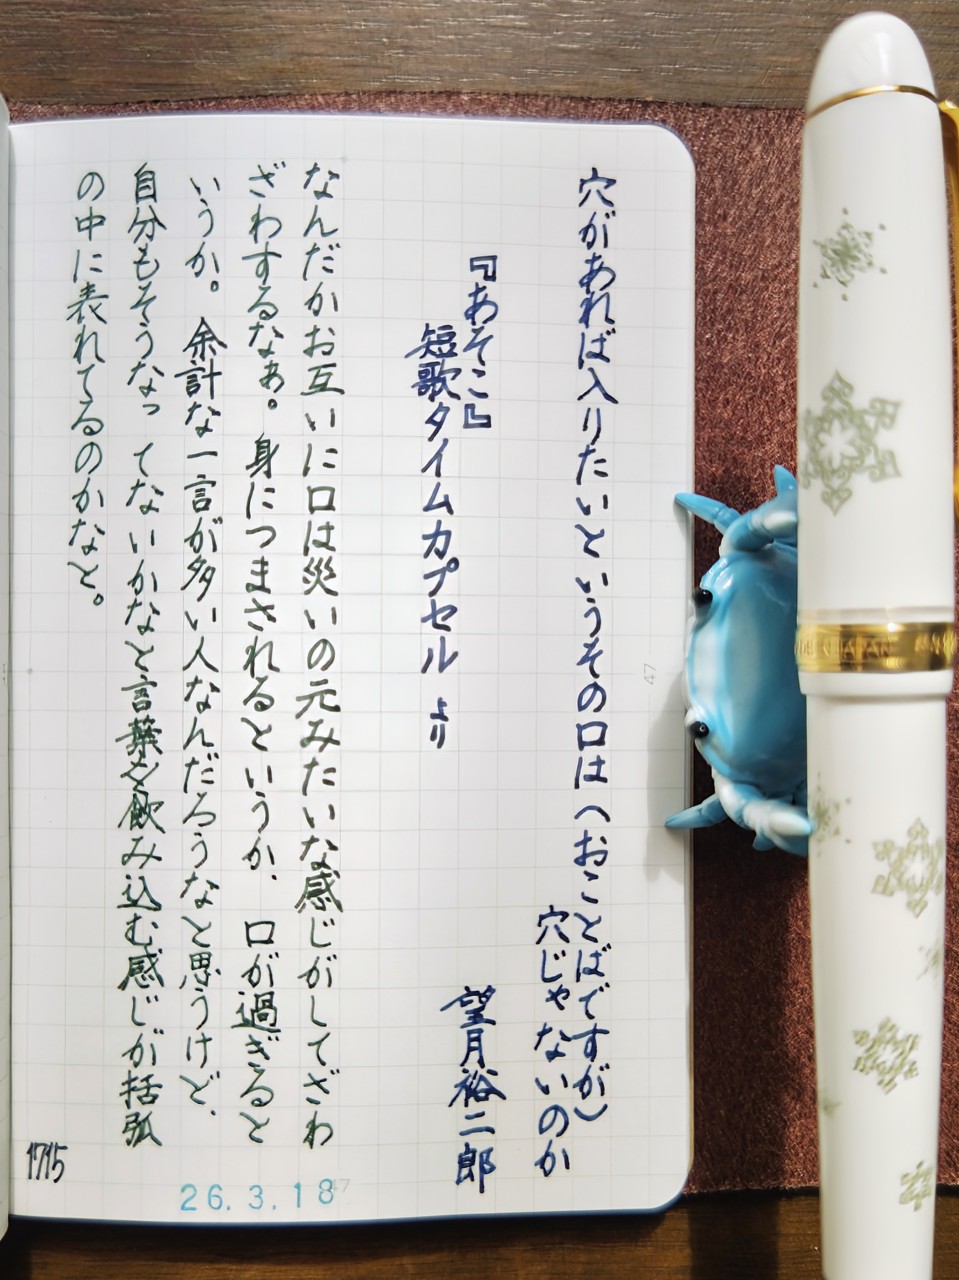 穴があれば入りたいというその口は(おことばですが)
穴じゃないのか
望月裕二郎
『あそこ』
短歌タイムカプセル より
なんだかお互いに口は災いの元みたいな感じがしてざわ
ざわするなぁ。身につまされるというか、口が過ぎると
いうか。余計な一言が多い人なんだろうなと思うけど、
自分もそうなってないかなと言葉を飲み込む感じが括弧
の中に表れてるのかなと。
1715
26.3.18
47
47
MADE IN JAPAN